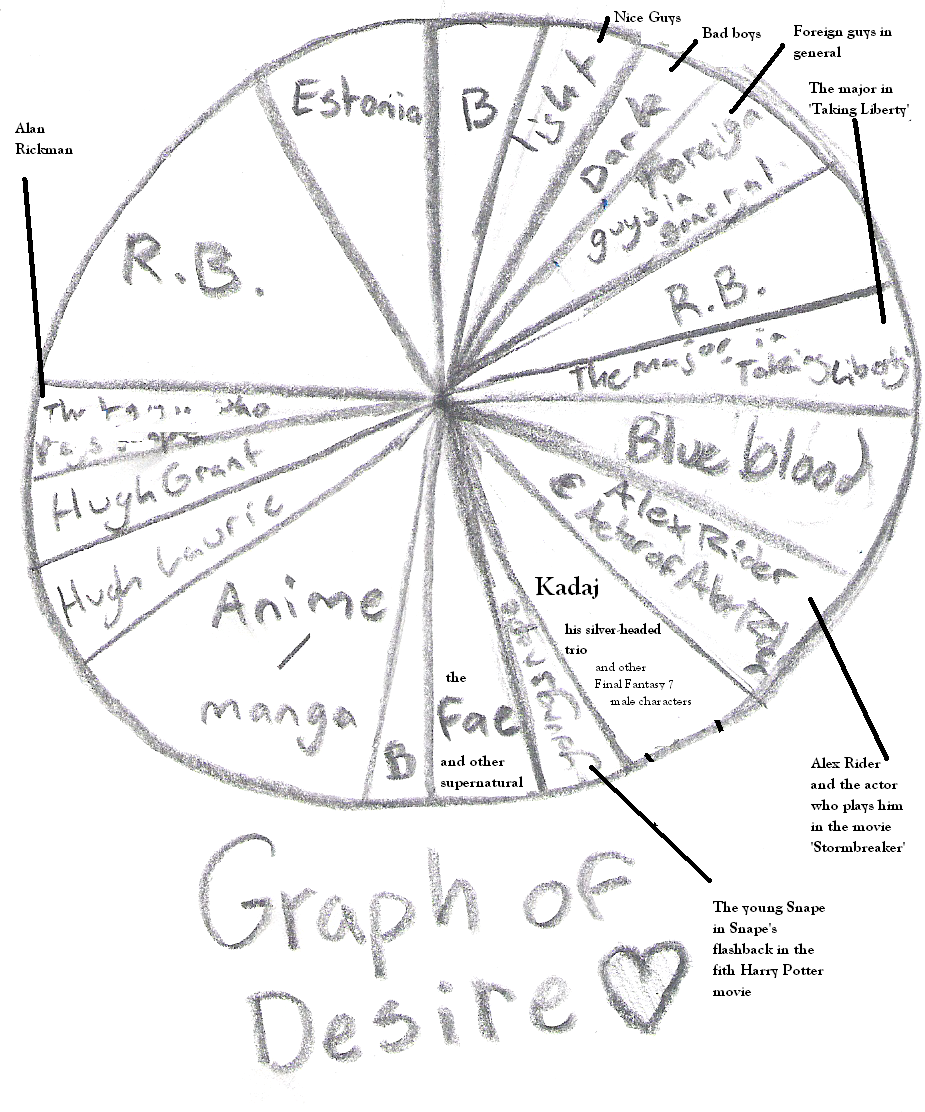 Nice Guys
Bad boys
Foreign guys in
general
The major in
'Taking Liberty'
Alan
Rickman
Estonia
B
Light
Dark
Foreign
guys in
general
R.B.
R.B.
The major in
Taking Liberty
Blue blood
Alex Rider
Actor of Alex Rider
Hugh Grant
Hugh Laurie
Anime
/
manga
B
the
Fae
and other
supernatural
Kadaj
his silver-headed
trio
and other
Final Fantasy 7
male characters
Alex Rider
and the actor
who plays him
in the movie
'Stormbreaker'
The young Snape
in Snape's
flashback in the
fith Harry Potter
movie
Graph of
Desire